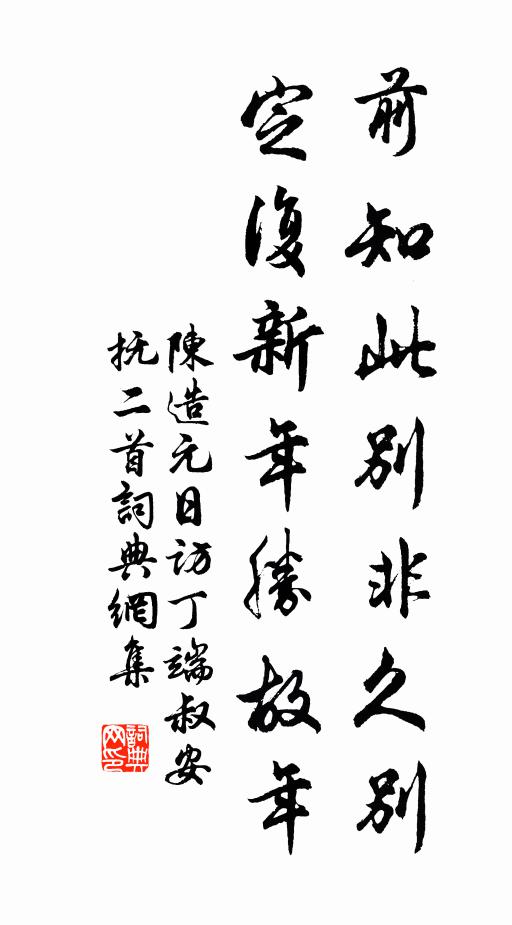 前知此別非久別
定復新年勝故年
陳造元日訪丁端叔安
抚二首詞典網集
詞典
网印